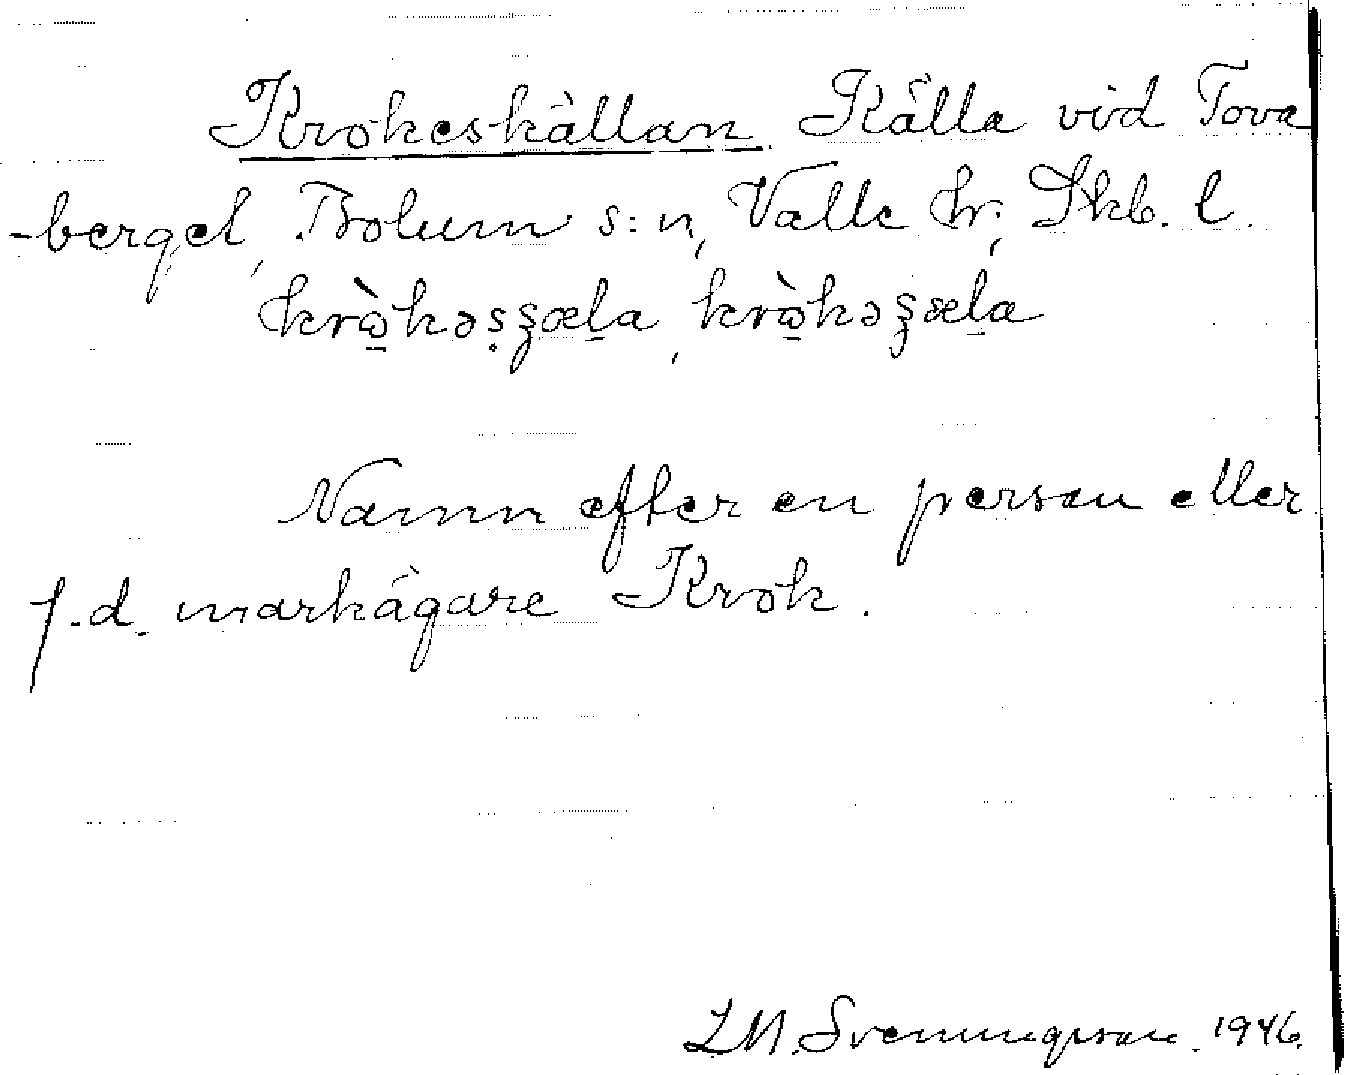 Krokeskällan. Källa vid Tova
-berget, Bolum s:n, Valle hr; Skb. l.
krὼkəsʂœla, krὼkəʂœla
Namn efter en person eller
f.d. markägare Krok.
L.M. Svenungsson. 1946.